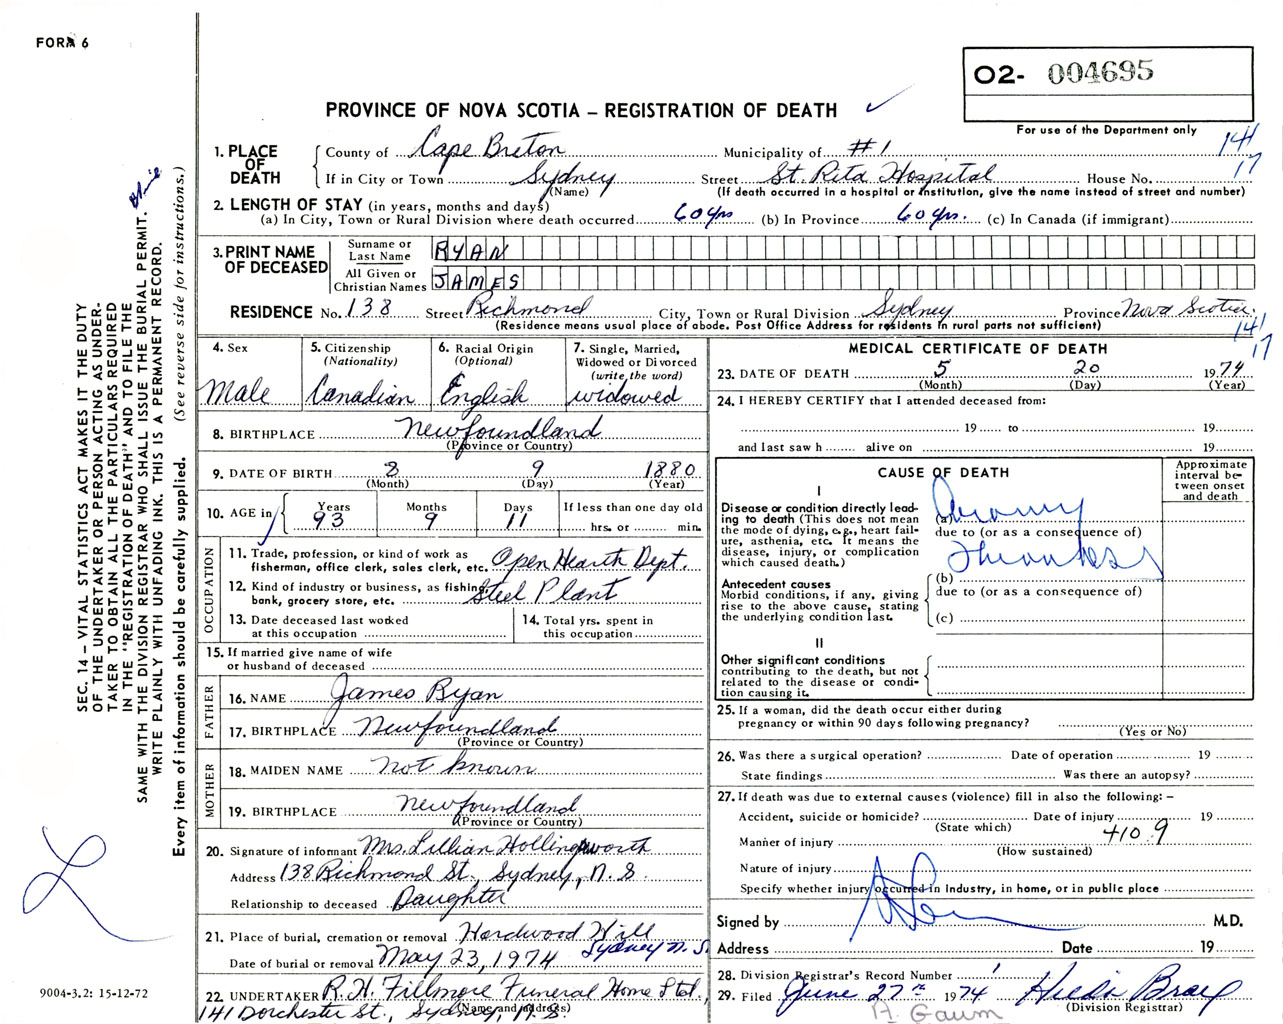 FORM 6
O2- 004695
For use of the Department only
PROVINCE OF NOVA SCOTIA – REGISTRATION OF DEATH
141
17
1. PLACE OF DEATH
County of Cape Breton Municipality of #1
If in City or Town Sydney Street St. Rita Hospital House No.
(Name) (If death occurred in a hospital or institution, give the name instead of street and number)
2. LENGTH OF STAY (in years, months and days)
(a) In City, Town or Rural Division where death occurred 60 yrs (b) In Province 60 yrs. (c) In Canada (if immigrant)
3. PRINT NAME OF DECEASED
Surname or Last Name RYAN
All Given or Christian Names JAMES
RESIDENCE No. 138 Street Richmond City, Town or Rural Division Sydney Province Nova Scotia.
(Residence means usual place of abode. Post Office Address for residents in rural parts not sufficient)
141
17
4. Sex
Male
5. Citizenship
(Nationality)
Canadian
6. Racial Origin
(Optional)
English
7. Single, Married,
Widowed or Divorced
(write the word)
widowed
8. BIRTHPLACE Newfoundland
(Province or Country)
9. DATE OF BIRTH 8 9 1880
(Month) (Day) (Year)
10. AGE in
Years Months Days If less than one day old
93 9 11 hrs. or min.
OCCUPATION
11. Trade, profession, or kind of work as
fisherman, office clerk, sales clerk, etc. Open Hearth Dept.
12. Kind of industry or business, as fishing,
bank, grocery store, etc. Steel Plant
13. Date deceased last worked
at this occupation
14. Total yrs. spent in
this occupation
15. If married give name of wife
or husband of deceased
FATHER
16. NAME James Ryan
17. BIRTHPLACE Newfoundland
(Province or Country)
MOTHER
18. MAIDEN NAME not known
19. BIRTHPLACE Newfoundland
(Province or Country)
20. Signature of informant Mrs. Lillian Hollingsworth
Address 138 Richmond St., Sydney, N. S.
Relationship to deceased Daughter
21. Place of burial, cremation or removal Hardwood Hill
Sydney N. S.
Date of burial or removal May 23, 1974
22. UNDERTAKER R. H. Fillmore Funeral Home Ltd.,
141 Dorchester St., Sydney, N. S.
(Name and address)
MEDICAL CERTIFICATE OF DEATH
23. DATE OF DEATH 5 20 1974
(Month) (Day) (Year)
24. I HEREBY CERTIFY that I attended deceased from:
19 to 19
and last saw h alive on 19
CAUSE OF DEATH
Approximate interval between onset and death
I
Disease or condition directly lead-
ing to death (This does not mean
the mode of dying, e.g., heart fail-
ure, asthenia, etc. It means the
disease, injury, or complication
which caused death.)
(a)
due to (or as a consequence of)
(b)
due to (or as a consequence of)
(c)
Antecedent causes
Morbid conditions, if any, giving
rise to the above cause, stating
the underlying condition last.
II
Other significant conditions
contributing to the death, but not
related to the disease or condi-
tion causing it.
25. If a woman, did the death occur either during
pregnancy or within 90 days following pregnancy?
(Yes or No)
26. Was there a surgical operation? Date of operation 19
State findings Was there an autopsy?
27. If death was due to external causes (violence) fill in also the following: –
Accident, suicide or homicide? Date of injury 19
(State which)
410.9
Manner of injury
(How sustained)
Nature of injury
Specify whether injury occurred in Industry, in home, or in public place
Signed by M.D.
Address Date 19
28. Division Registrar's Record Number 1
29. Filed June 27th 1974
(Division Registrar)
SEC. 14 – VITAL STATISTICS ACT MAKES IT THE DUTY
OF THE UNDERTAKER OR PERSON ACTING AS UNDER-
TAKER TO OBTAIN ALL THE PARTICULARS REQUIRED
IN THE "REGISTRATION OF DEATH" AND TO FILE THE
SAME WITH THE DIVISION REGISTRAR WHO SHALL ISSUE THE BURIAL PERMIT.
WRITE PLAINLY WITH UNFADING INK. THIS IS A PERMANENT RECORD.
Every item of information should be carefully supplied. (See reverse side for instructions.)
9004-3.2: 15-12-72